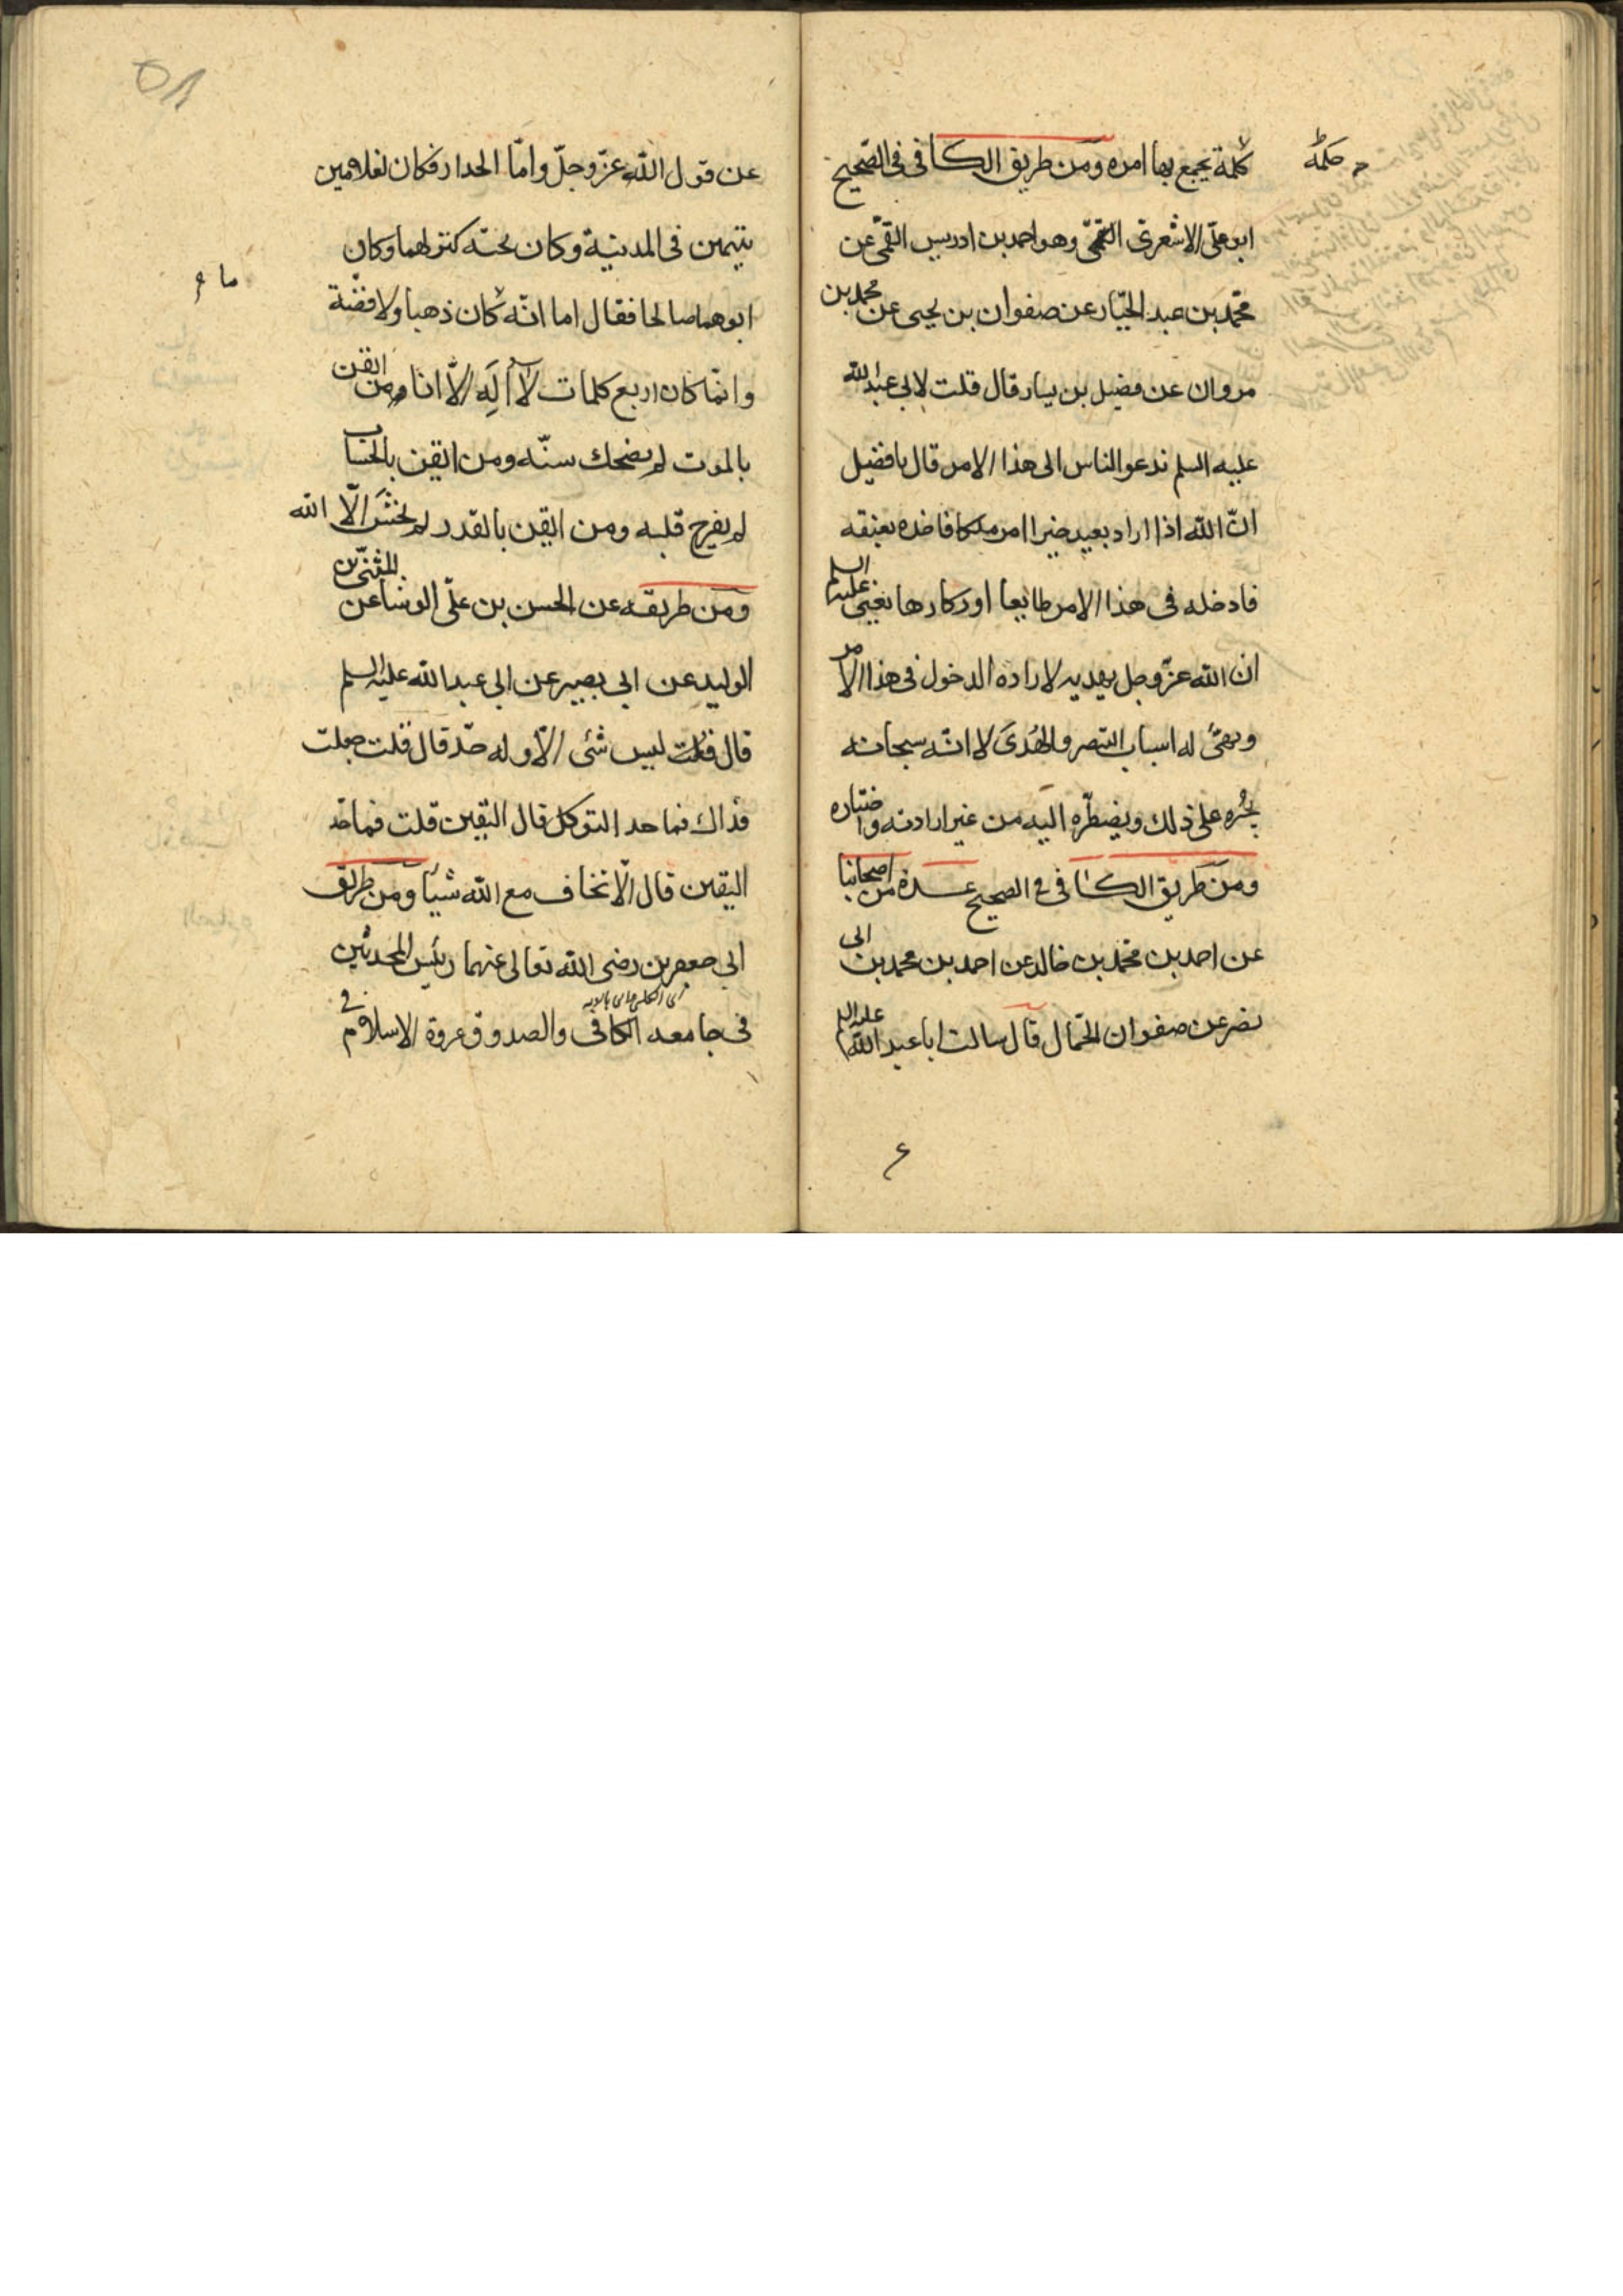 كلمة يجمع بها امره ومن طريق الكافى فى الصحيح
حكمة
ابو على الاشعرى القمى وهو احمد بن ادريس القمى عن
محمد بن عبد الجبار عن صفوان بن يحيى عن محمد بن
مروان عن فضيل بن يسار قال قلت لابى عبد الله
عليه السلم ندعو الناس الى هذا الامر قال يا فضيل
ان الله اذا اراد بعبد خيرا امر ملكا فاخذه بعنقه
فادخله فى هذا الامر طايعا او كارها يعنى عليه السلم
ان الله عز وجل يهديه لارادة الدخول فى هذا الامر
ويهيئ له اسباب التبصر والهدى لا انه سبحانه
يجبره على ذلك ويضطره اليه من غير ارادته واختياره
ومن طريق الكافى فى الصحيح عدة من اصحابنا
عن احمد بن محمد بن خالد عن احمد بن محمد بن ابى
نصر عن صفوان الجمال قال سالت ابا عبد الله عليه السلم
ع
٥٨
عن قول الله عز وجل واما الجدار فكان لغلامين
يتيمين فى المدينة وكان تحته كنز لهما وكان
ما
ابوهما صالحا فقال اما انه كان ذهبا ولا فضة
وانما كان اربع كلمات لا اله الا انا ومن ايقن
بالموت لم يضحك سنه ومن ايقن بالحساب
لم يفرح قلبه ومن ايقن بالقدر لم يخش الا الله
ومن طريقه عن الحسن بن على الوشا عن المثنى بن
الوليد عن ابى بصير عن ابى عبد الله عليه السلم
قال قلت ليس شئ الا وله حد قال قلت جعلت
فداك فما حد التوكل قال اليقين قلت فما حد
اليقين قال الا تخاف مع الله شيئا ومن طريق
ابى جعفرين رضى الله تعالى عنهما رئيس المحدثين
فى جامعه الكافى والصدوق عروة الاسلام فى